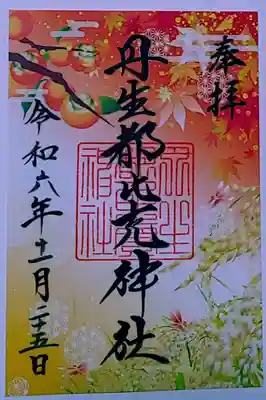 奉拝
丹生都比売神社
令和六年十一月二十五日